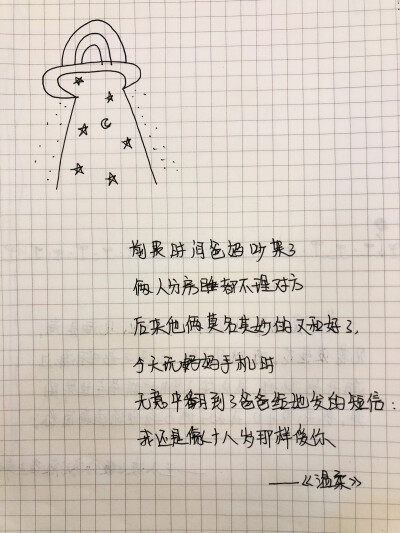 前段时间爸妈吵架了
俩人分房睡都不理对方
后来他俩莫名其妙的又和好了,
今天玩妈妈手机时
无意中翻到了爸爸给她发的短信:
我还是像十八岁那样爱你
——《温柔》